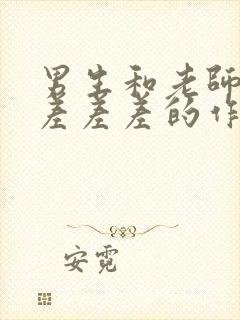 男生和老师
差差差的作
安霓